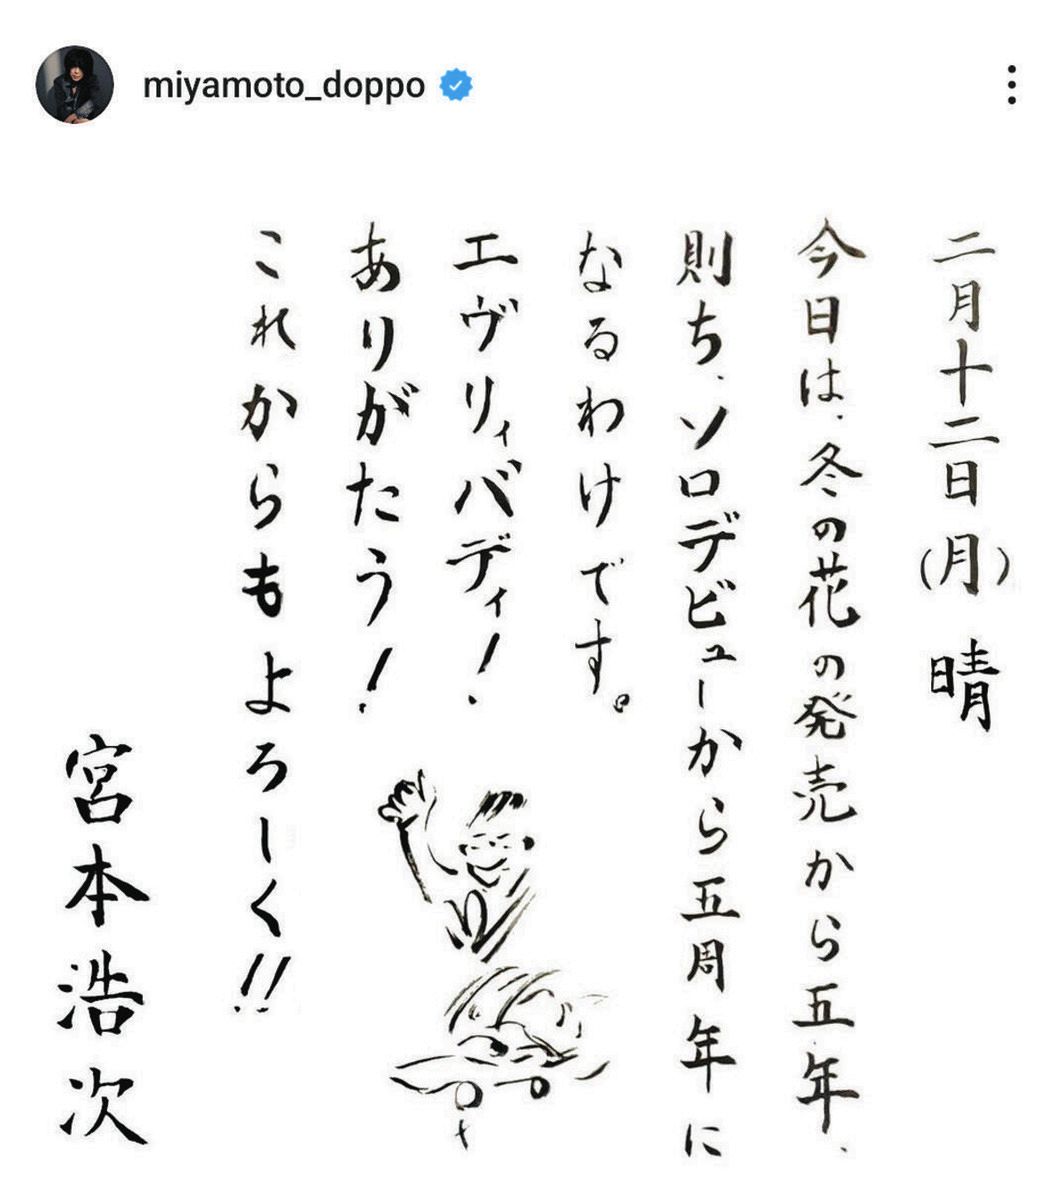 miyamoto_doppo
二月十二日(月) 晴
今日は、冬の花の発売から五年、
則ち、ソロデビューから五周年に
なるわけです。
エヴリィバディ!
ありがたう!
これからもよろーく!!
宮本浩次